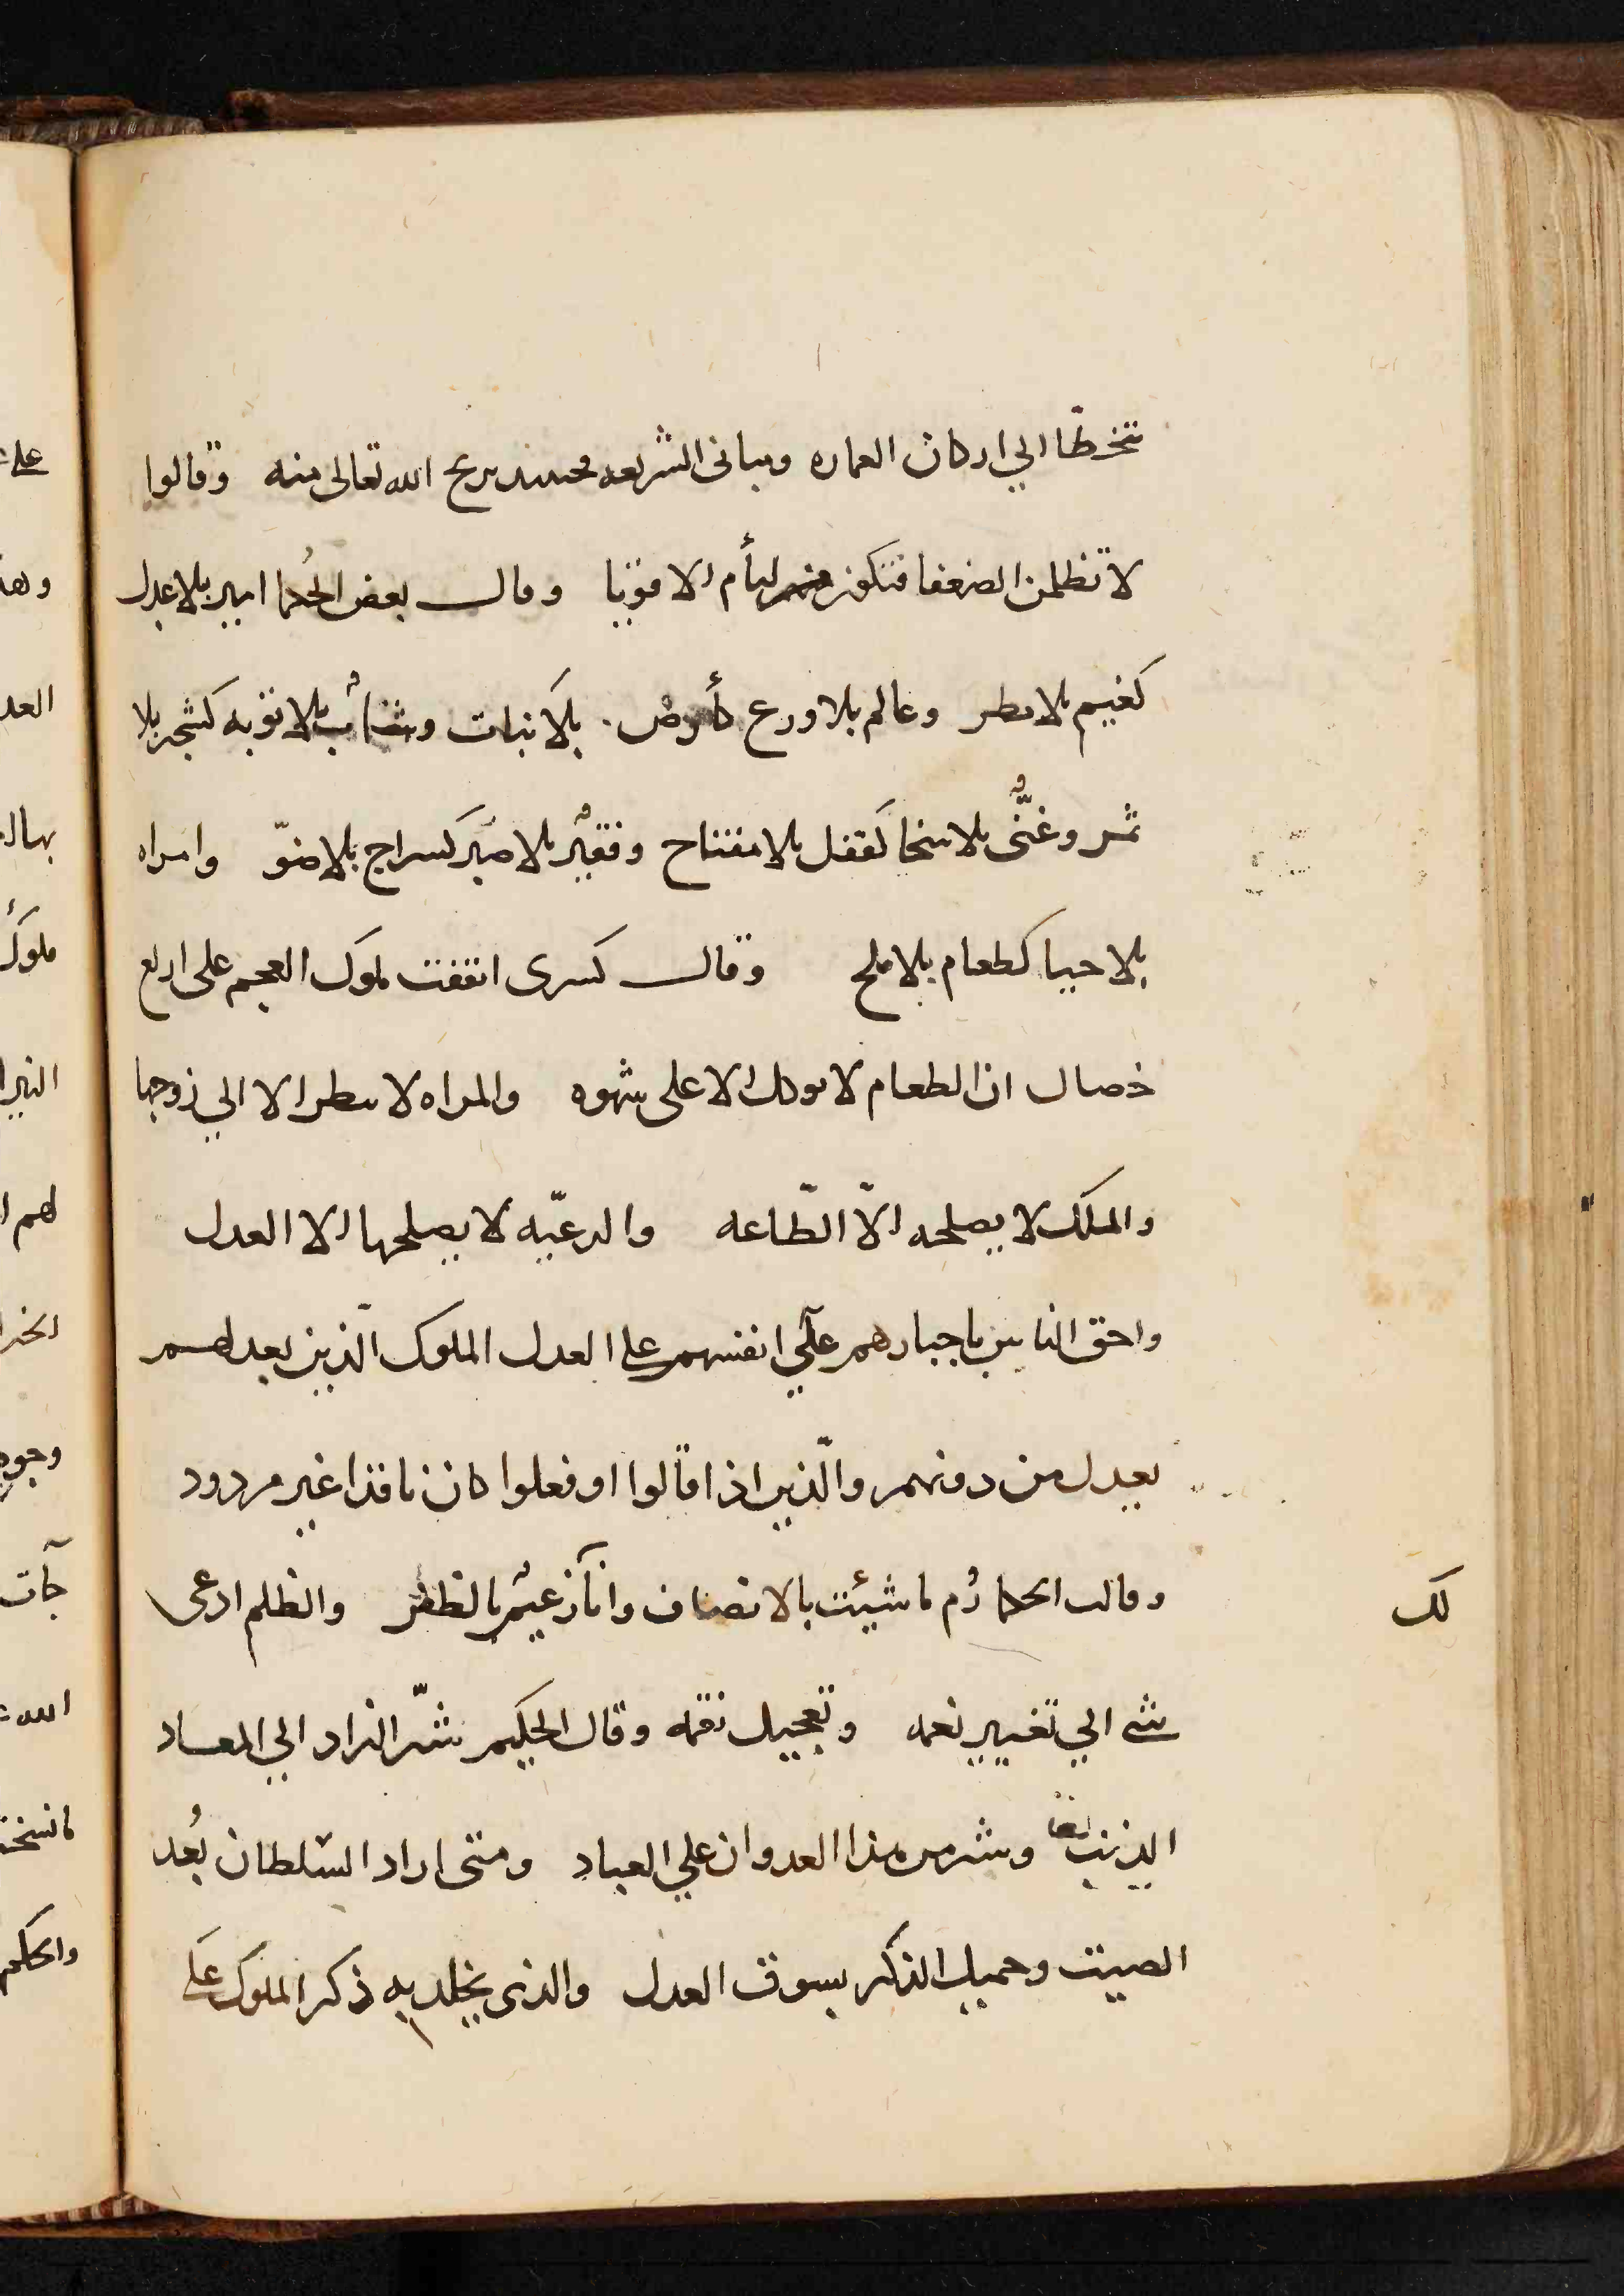 تتخطّا الي اركان العماره ومبانى الشريعه فحينئذ يريح الله تعالى منه وقالوا
لا تظلمن الضعفا فتكون من لئأم الاقويا وقال بعض الحُكما امير بلا عدل
كغيم بلا مطر وعالم بلا ورع كأرض بلا نبات وشاب بلا توبه كشجر بلا
ثمر وغنىٌّ بلا سخا كقفل بلا مفتاح وفقيرٌ بلا صبر كسراج بلا ضوّ وامراه
بلا حيا كطعام بلا ملح وقال كسرى اتفقت ملوك العجم على اربع
خصال ان الطعام لا يوكل الا على شهوه والمراه لا تنظر الا الي زوجها
والملك لا يصلحه الاّ الطّاعه والرعيّه لا يصلحها الا العدل
واحق الناس باجبارهم علي انفسهم على العدل الملوك الّذين بعدلهم
يعدل من دونهم والّذين اذا قالوا او فعلوا كان نافذا غير مردود
وقالت الحكما دُم ما شيئت بالانصاف وانا زعيمٌ بالظفر والظلم ادعى
لك
شى الي تغيير نعمه وتعجيل نقمه وقال الحكيم شرّ الزاد الي المعاد
الذنب وشر من هذا العدوان علي العباد ومتى اراد السّلطان بُعد
الصيت وجميل الذكر بسوق العدل والذى يخلد به ذكر الملوك على